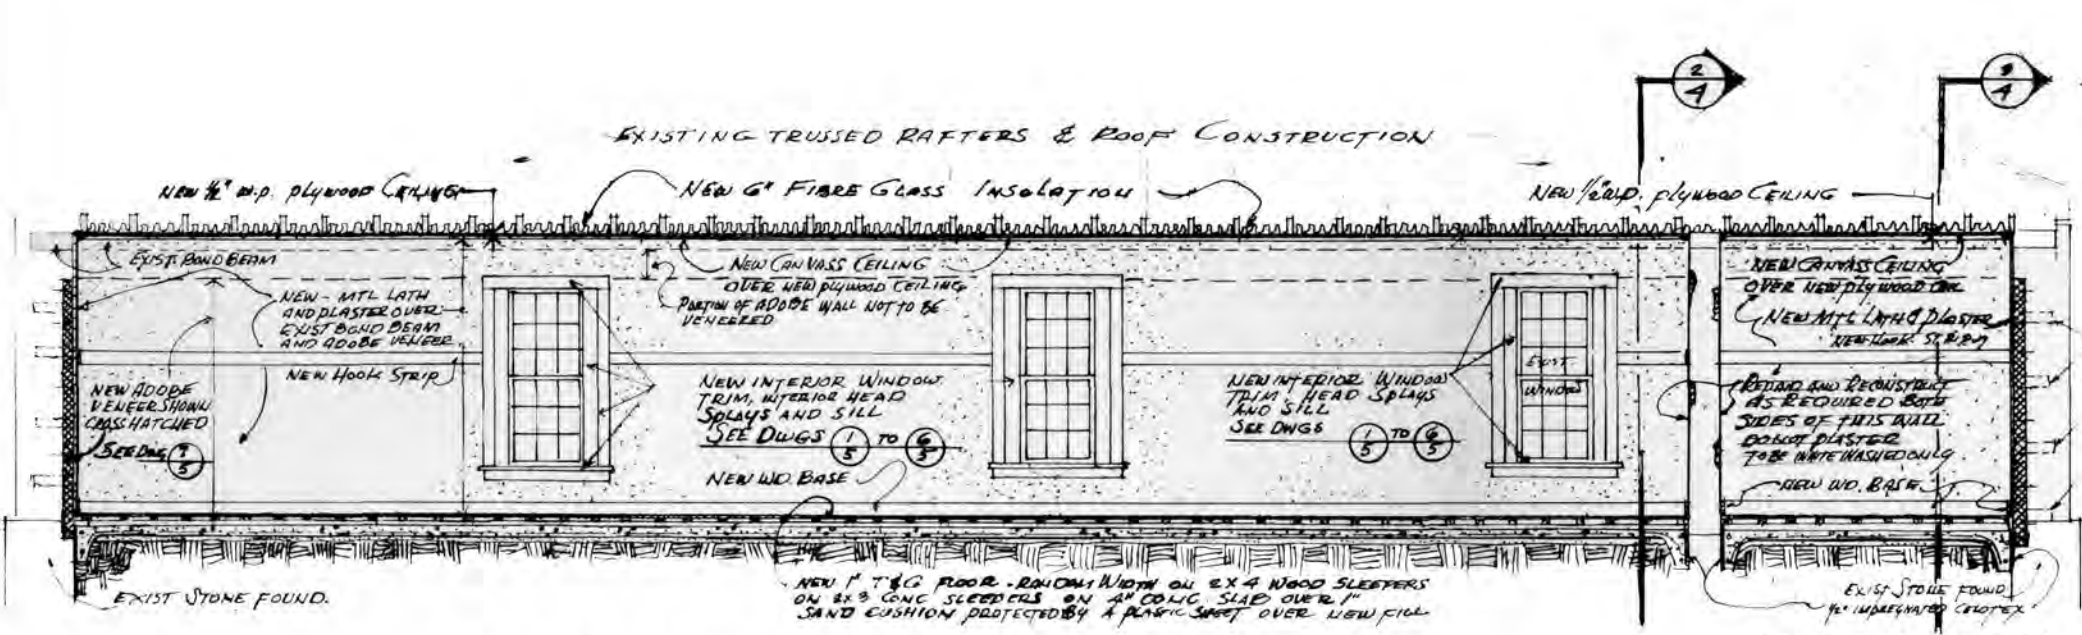 2
4
3
4
EXISTING TRUSSED RAFTERS & ROOF CONSTRUCTION
NEW 1/2" W.P. PLYWOOD CEILING
NEW 6" FIBRE GLASS INSOLATION
NEW 1/2" W.P. PLYWOOD CEILING
EXIST. BOND BEAM
NEW - MTL LATH
AND PLASTER OVER
EXIST BOND BEAM
AND ADOBE VENEER
NEW HOOK STRIP
NEW ADOBE
VENEER SHOWN
CROSS HATCHED
SEE DWG
5
NEW CANVASS CEILING
OVER NEW PLYWOOD CEILING
PORTION OF ADOBE WALL NOT TO BE
VENEERED
NEW INTERIOR WINDOW
TRIM, INTERIOR HEAD
SPLAYS AND SILL
SEE DWGS 1/5 TO 6/5
NEW WD. BASE
NEW INTERIOR WINDOW
TRIM, HEAD SPLAYS
AND SILL
SEE DWGS 1/5 TO 6/5
EXIST.
WINDOW
NEW CANVASS CEILING
OVER NEW PLYWOOD CEIL
NEW MTL LATH & PLASTER
NEW HOOK STRIP
REPAIR AND RECONSTRUCT
AS REQUIRED BOTH
SIDES OF THIS WALL
DO NOT PLASTER
TO BE WHITE WASHED ONLY
NEW WD. BASE
EXIST STONE FOUND.
NEW 1" T&G FLOOR - RANDOM WIDTH ON 2X4 WOOD SLEEPERS
ON 2X3 CONC SLEEPERS ON 4" CONC. SLAB OVER 1"
SAND CUSHION PROTECTED BY A PLASTIC SHEET OVER NEW FILL
EXIST STONE FOUND
1/2" IMPREGNATED CELOTEX